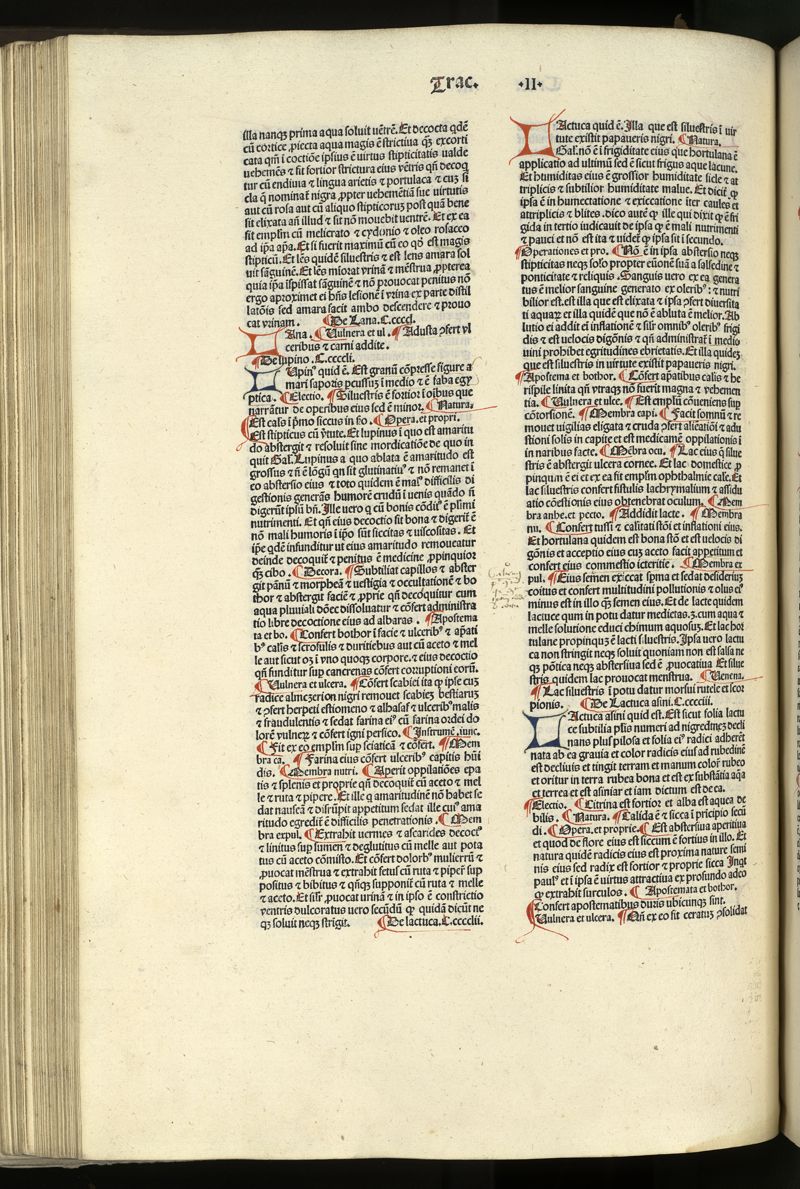 Trac. .II.
illa nanqꝫ prima aqua soluit uētrē. Et decocta qdē
cū cortice ꝓiecta aqua magis ē strictiua qꝫ excorti
cata qm̄ ī coctiōe ipsius ē uirtus stipticitatis ualde
uehemēs ⁊ sit fortior strictura eius vētris qn̄ decoq̄
tur cū endiuia ⁊ lingua arietis ⁊ portulaca ⁊ cuꝫ si
cla q̄ nominat̄ nigra ꝓpter uehemētiā sue uirtutis
aut cū rosa aut cū aliquo stipticoruꝫ post quā bene
sit elixata an̄ illud ⁊ sit nō mouebit uentrē. Et ex ea
sit emplm̄ cū melicrato ⁊ cydonio ⁊ oleo rosacco
ad ip̄a ap̄a. Et si fuerit maximū cū eo qō est magis
stipticū. Et lēs quidē siluestris ⁊ est lens amara sol
uit sāguinē. Et lēs miorat vrinā ⁊ mēstrua ꝓpterea
quia ip̄a ispissat sāguinē ⁊ nō prouocat penitus nō
ergo aproximet ei hn̄s lesionē ī vrina ex parte distil
latōis sed amara facit ambo descendere ⁊ prouo
cat vrinam. ¶De Lana. C.ccccl.
LAna. ¶Vulnera et ul. ¶Adusta ɔfert vl
ceribus ⁊ carni addite.
¶De lupino. C.ccccli.
LUpin⁹ quid ē. Est granū cōpresse figure a
mari saporis pcussuꝫ ī medio ⁊ ē faba egy
ptica. ¶Electio. ¶Siluestris ē fortior ī oībus que
narrātur de operibus eius sed ē minor. ¶Natura.
¶Est cals̄ ī p̄mo siccus in s̄o. ¶Opera. et propri.
¶Est stipticus cū v̄tute. Et lupinus ī quo est amaritu
do abstergit ⁊ resoluit sine mordicatiōe de quo in
quit Gal. Lupinus a quo ablata ē amaritudo est
grossus ⁊ n̄ ē lōgū qn̄ sit glutinatiu⁹ ⁊ nō remanet ī
eo abstersio eius ⁊ toto quidem ē mai⁹ difficilis di
gestionis generās humorē crudū ī uenis quādo n̄
digerūt ipsū bn̄. Ille uero q̄ cū bonis cōdit⁹ ē plīmi
nutrimenti. Et qn̄ eius decoctio sit bona ⁊ digerit̄ ē
nō mali humoris ī ip̄o sūt siccitas ⁊ uiscositas. Et
ip̄e qdē infunditur ut eius amaritudo remoueatur
deinde decoquit̄ ⁊ penitus ē medicine ꝓpinquior
qꝫ cibo. ¶Decora. ¶Subtiliat capillos ⁊ abster
git pānū ⁊ morpheā ⁊ uestigia ⁊ occultationē ⁊ bo
thor ⁊ abstergit faciē ⁊ ꝓprie qn̄ decoquitur cum
aqua pluuiali dōec dissoluatur ⁊ cōfert administra
tio libre decoctione eius ad albaras. ¶Apostema
ta et bo. ¶Confert bothor ī facie ⁊ ulcerib⁹ ⁊ ap̄ati
b⁹ calis̄ ⁊ scrofulis ⁊ duritiebus aut cū aceto ⁊ mel
le aut sicut oꝫ ī vno quoqꝫ corpore. ⁊ eius decoctio
qn̄ funditur sup cancrenas cōfert corruptioni eorū.
¶Vulnera et ulcera. ¶Cōfert scabiei ita q̱ ipse cuꝫ
radice almezerion nigri remouet scabieꝫ bestiaruꝫ
⁊ ɔfert herpeti estiomeno ⁊ alhasaf ⁊ ulcerib⁹ malis
⁊ fraudulentis ⁊ sedat farina ei⁹ cū farina ordei do
lorē vulneꝝ ⁊ cōfert igni persico. ¶Instrumē. iunc.
¶Fit ex eo emplm̄ sup sciaticā ⁊ cōfert. ¶Mem
bra ca. ¶Farina eius cōfert ulcerib⁹ capitis hūi
dis. ¶Membra nutri. ¶Aperit oppilatiōes epa
tis ⁊ splenis et proprie qn̄ decoquit̄ cū aceto ⁊ mel
le ⁊ ruta ⁊ pipere. Et ille q̄ amaritudinē nō habet se
dat nauseā ⁊ disrūpit appetitum sedat ille cui⁹ ama
ritudo egredit̄ ē difficilis penetrationis. ¶Mem
bra expul. ¶Extrahit uermes ⁊ ascarides decoct⁹
⁊ linitus sup sumen ⁊ deglutitus cū melle aut pota
tus cū aceto cōmisto. Et cōfert dolorb⁹ mulierrū ⁊
ꝓuocat mēstrua ⁊ extrahit fetuꝫ cū ruta ⁊ piper̄ sup
positus ⁊ bibitus ⁊ qn̄qꝫ supponit̄ cū ruta ⁊ melle
⁊ aceto. Et sil̄r ꝓuocat urinā ⁊ in ipso ē constrictio
ventris dulcoratus uero secūdū q̱ quidā dicūt ne
qꝫ soluit neqꝫ strīgit. ¶De lactuca. C.cccclii.
LActuca quid ē. Illa que est siluestris ī uir
tute existit papaueris nigri. ¶Natura.
Gal. nō ē ī frigiditate eius que hortulana ē
applicatio ad ultimū sed ē sicut frigus aque lacune.
Et humiditas eius ē grossior humiditate sicle ⁊ at
triplicis ⁊ subtilior humiditate malue. Et dicit̄ q̱
ipsa ē in humectatione ⁊ exiccatione iter caules et
attriplicis ⁊ blites. dico autē q̱ ille qui dixit q̱ ē fri
gida in tertio iudicauit de ipsa q̱ ē mali nutrimenti
⁊ pauci et nō est ita ⁊ uidet̄ q̱ ipsa sit ī secundo.
¶Operationes et pro. ¶Nō ē in ipsa abstersio neqꝫ
stipticitas neqꝫ solo propter euōnē suā a salsedine ⁊
ponticitate ⁊ reliquis. Sanguis uero ex ea genera
tus ē melior sanguine generato ex olerib⁹: ⁊ nutri
bilior est. est illa que est elixata ⁊ ipsa ɔfert diuersita
ti aquaꝝ et illa quidē que nō ē abluta ē melior. Ab
lutio ei addit ei īflationē ⁊ sil̄r omnib⁹ olerib⁹ frigi
dis ⁊ est uelocis digōnis ⁊ qn̄ administrat̄ ī medio
uini prohibet egritudines ebrietatis. Et illa quideꝫ
que est siluestris in uirtute existit papaueris nigri.
¶Apostema et bothor. ¶Cōfert ap̄atibus calis̄ ⁊ he
rispile linita qn̄ vtraqꝫ nō fuerit magna ⁊ vehemen
tia. ¶Vulnera et ulce. ¶Est emplm̄ cōueniens sup
cōtorsionē. ¶Membra capi. ¶Facit somnū ⁊ re
mouet uigilias eligata ⁊ cruda ɔfert alienatiōi ⁊ adu
stioni solis in capite et est medicamē oppilationis ī
in naribus facte. ¶Mēbra ocu. ¶Lac eius q̄ silue
stris ē abstergit ulcera cornee. Et lac domestice ꝓ
pinquum ē ei et ex ea sit emplm̄ ophthalmie cale. Et
lac siluestris confert fistulis lachrymalium ⁊ assidu
atio cōestionis eius obtenebrat oculum. ¶Mem
bra anhe. et pecto. ¶Addidit lacte. ¶Membra
nu. ¶Confert tussi ⁊ calitati stōi et inflationi eius.
Et hortulana quidem est bona stō et est uelocis di
gōnis et acceptio eius cuꝫ aceto facit appetitum et
confert eius commestio icteritie. ¶Membra ex
pul. ¶Eius semen exiccat spma et sedat desideriuꝫ
coitus et confert multitudini pollutionis ⁊ olus ei⁹
minus est in illo qꝫ semen eius. Et de lacte quidem
lactuce qum in potu datur medietas. ʒ. cum aqua ⁊
melle solutione educi chimum aquosuꝫ. Et lac hor
tulane propinquꝫ ē lacti siluestris. Ipsa uero lactu
ca non stringit neqꝫ soluit quoniam non est salsa ne
qꝫ pōtica neqꝫ abstersiua sed ē ꝓuocatiua Et silue
stris quidem lac prouocat menstrua. ¶Venena.
¶Lac siluestris ī potu datur morsui rutele et scor
pionis. ¶De Lactuca asini. C.ccccliii.
LActuca asini quid est. Est sicut folia lactu
ce subtilia plis numeri ad nigredineꝫ decli
nans plus pilosa et folia ei⁹ radici adherēt
nata ab ea grauia et color radicis eius ad rubedinē
est decliuis et tingit terram et manum color rubeo
et oritur in terra rubea bona et est ex substātia aq̄a
et terrea et est asiniar et iam dictum est de ea.
¶Electio. ¶Citrina est fortior et alba est aquea de
bilis. ¶Natura. ¶Calida ē ⁊ sicca ī pricipio secū
di. ¶Opera. et proprie. ¶Est abstersiua aperitiua
et quod de flore eius est siccum ē fortius in illo. Et
natura quidē radicis eius est proxima nature semi
nis eius sed radix est fortior ⁊ proprie sicca Inqt
paul⁹ et ī ipsa ē virtus attractiua ex profundo adeo
q̱ extrahit surculos. ¶Apostemata et bothor.
¶Confert apostematibus duris ubicunqꝫ sint.
¶Vulnera et ulcera. ¶Qn̄ ex eo sit ceratuꝫ ɔsolidat